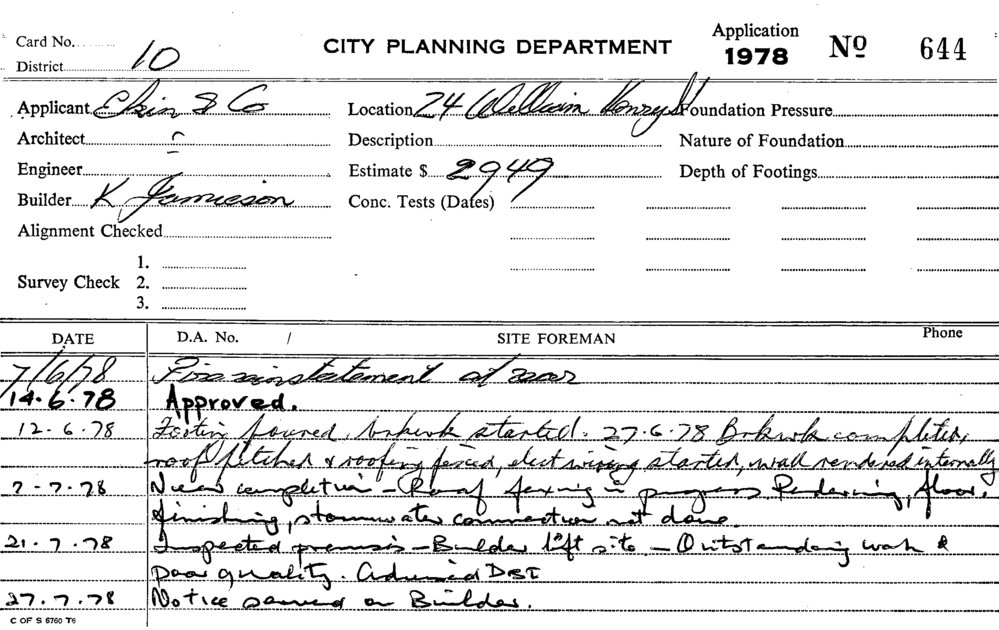 Card No.
District 10
CITY PLANNING DEPARTMENT
Application
1978 Nº 644
Applicant Ekin & Co
Location 24 William Henry St
Foundation Pressure
Architect
Description
Nature of Foundation
Engineer
Estimate $ 2949
Depth of Footings
Builder K Jamieson
Conc. Tests (Dates)
Alignment Checked
Survey Check 1.
2.
3.
DATE D.A. No. / SITE FOREMAN Phone
7/6/78 Fire reinstatement at rear
14.6.78 Approved.
12.6.78 Footing poured, brkwk started. 27.6.78 Brkwk completed,
roof pitched & roofing fixed, elect wiring started, wall rendered internally
7-7-78 Near completion - Roof fixing in progress Rendering, floor
finishing, stormwater connection not done.
21.7.78 Inspected premises - Builder left site - Outstanding work &
poor quality. Advised DBI
27.7.78 Notice served on Builder.
C OF S 6760 T6